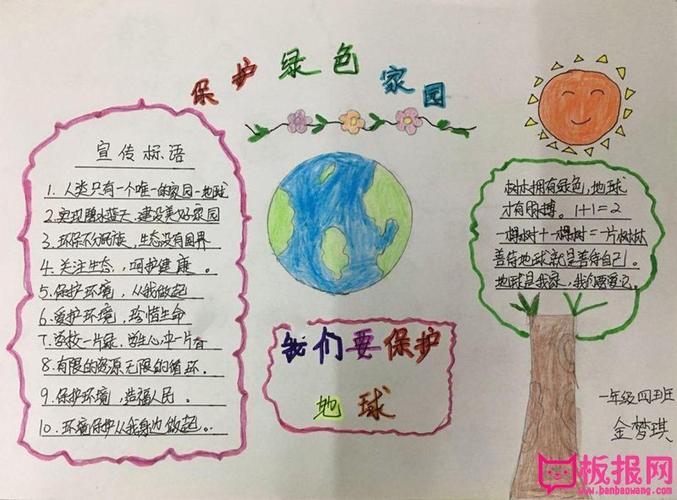 保护绿色家园
宣传标语
1. 人类只有一个唯一的家园-地球
2. 实现碧水蓝天,建设美好家园
3. 环保不分民族,生态没有国界
4. 关注生态,呵护健康。
5. 保护环境,从我做起
6. 爱护环境,珍惜生命
7. 学校一片绿,学生心中一片春
8. 有限的资源 无限的循环.
9. 保护环境,造福人民.
10. 环境保护从我身边做起.
树林拥有绿色,地球
才有脉搏。1+1=2
一棵树+一棵树=一片树林
善待地球就是善待自己.
地球是我家,我们要爱它.
我们要保护
地球
一年级四班
金梦琪
板报网
www.banbaowang.com